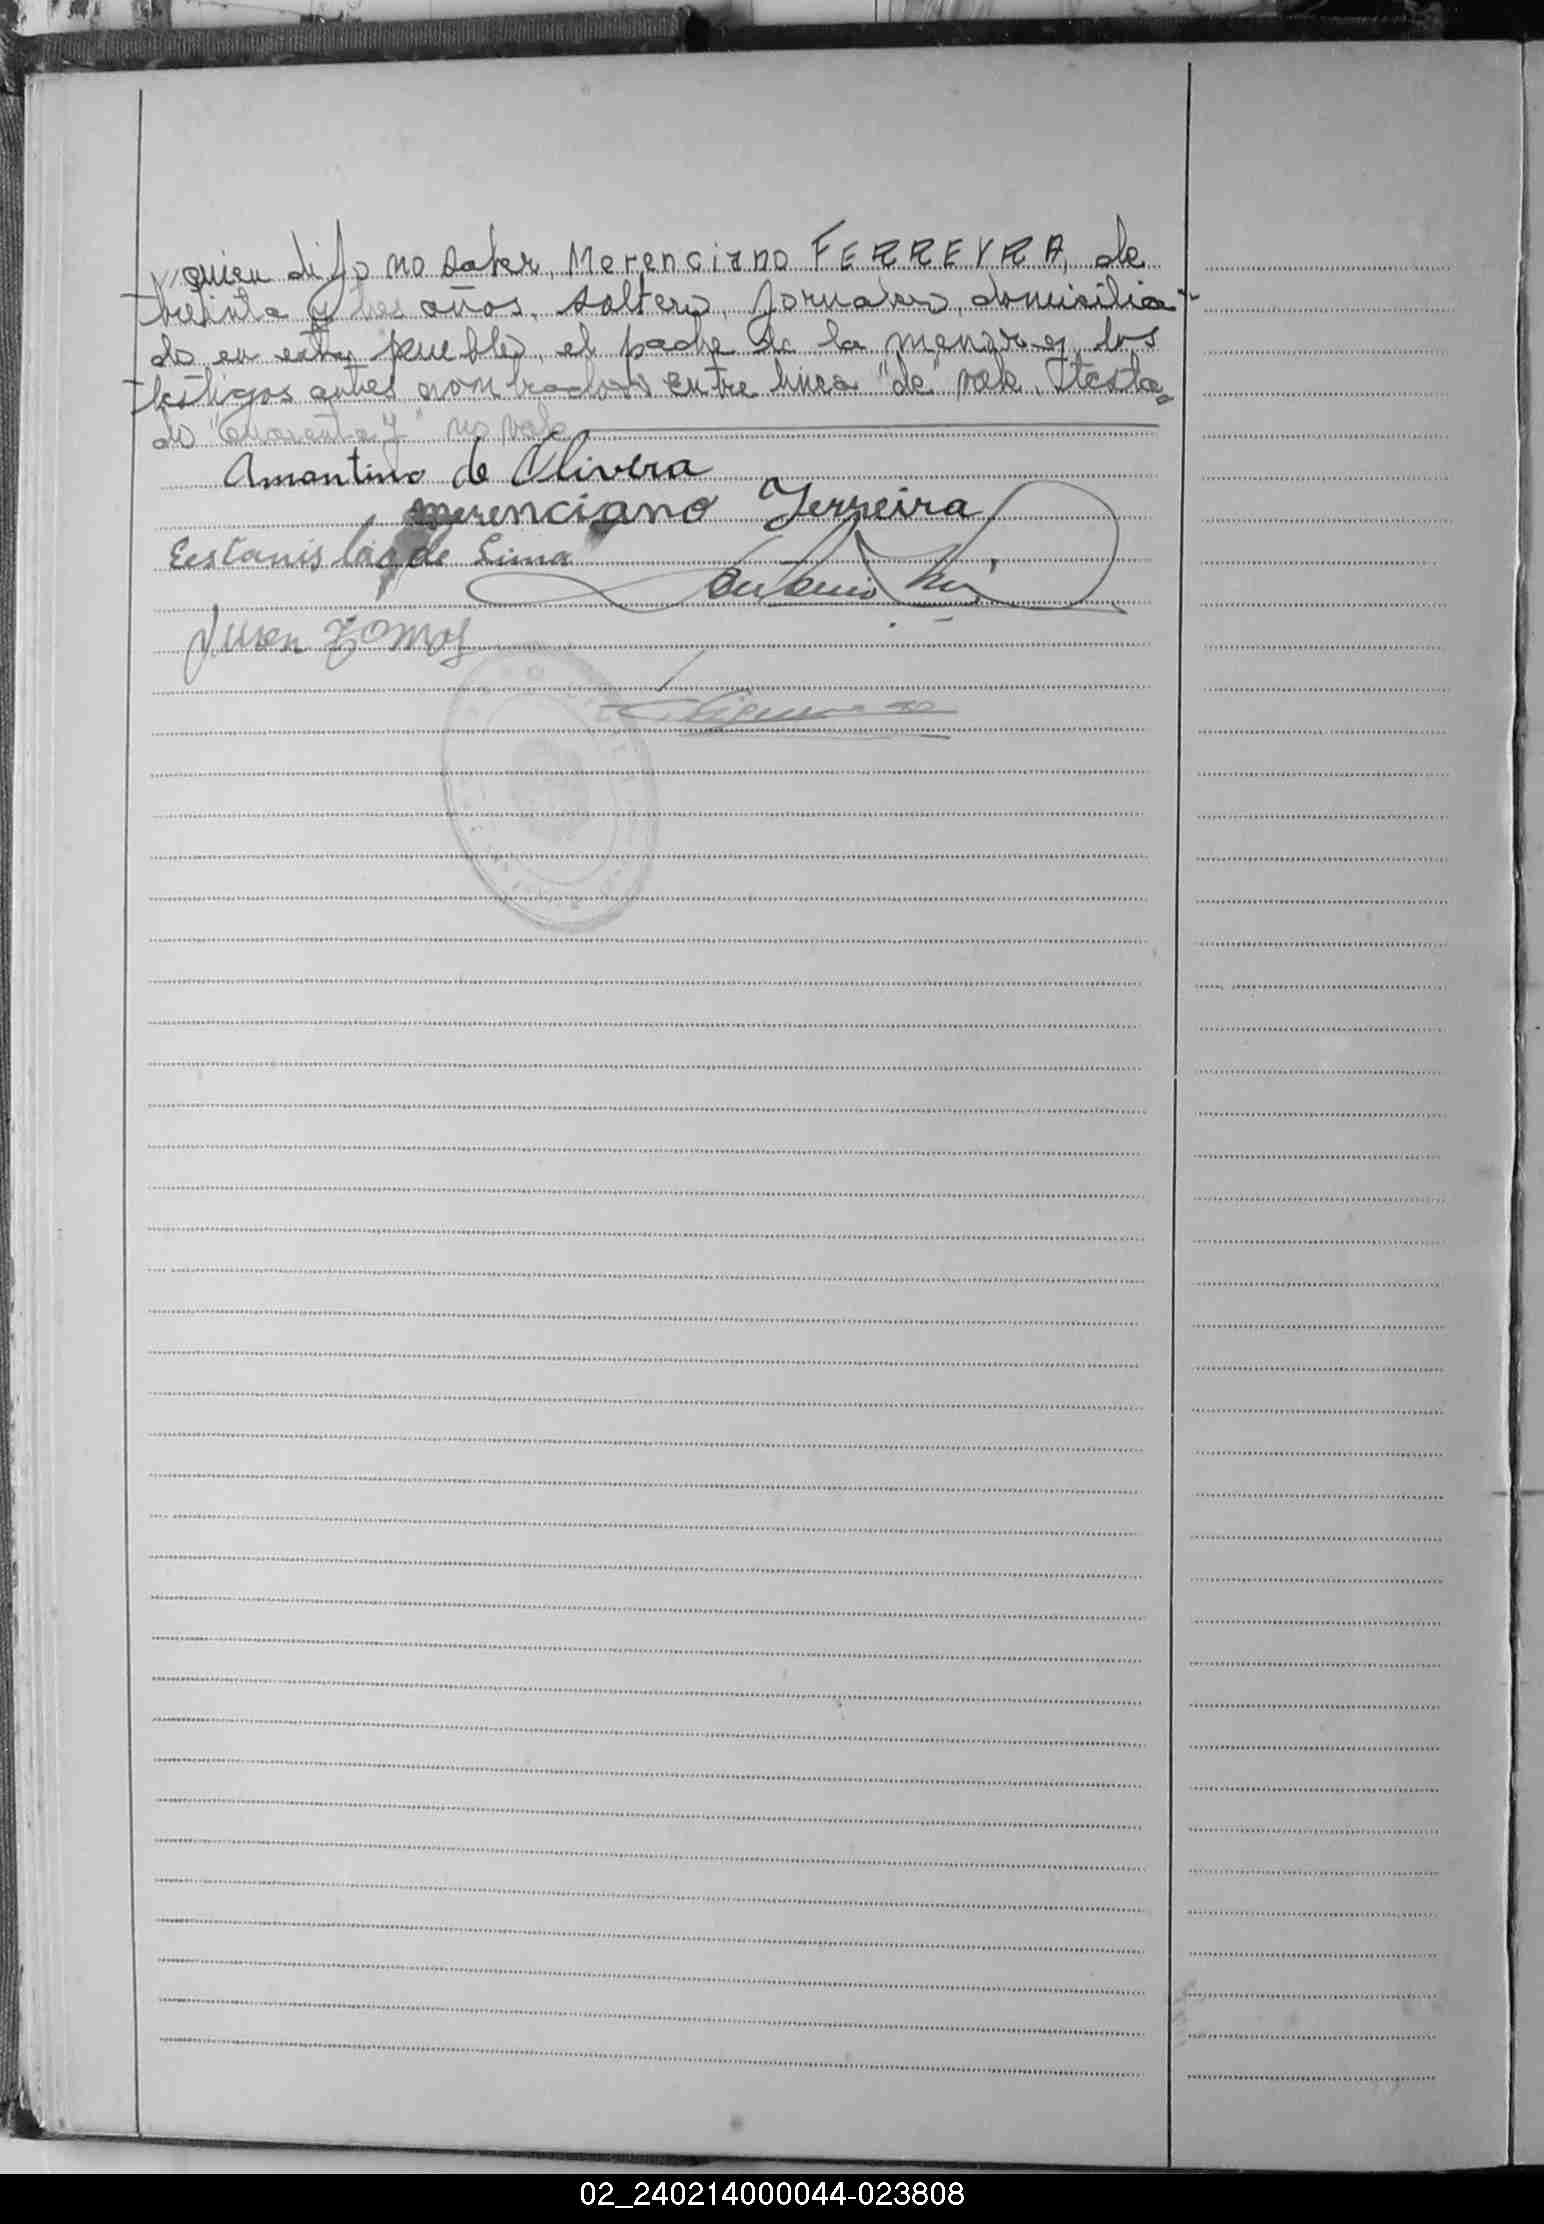 quien dijo no saber, Merenciano FERREYRA, de
treinta y tres años, soltero, jornalero, domicilia-
do en este pueblo, el padre de la menor y los
testigos antes nombrados entre linea "de" vale. Testa-
do "cuarenta y" no vale
Amantino de Olivera
merenciano Ferreira
Eestanislao de Lima
Antonio
Juan
02_240214000044-023808